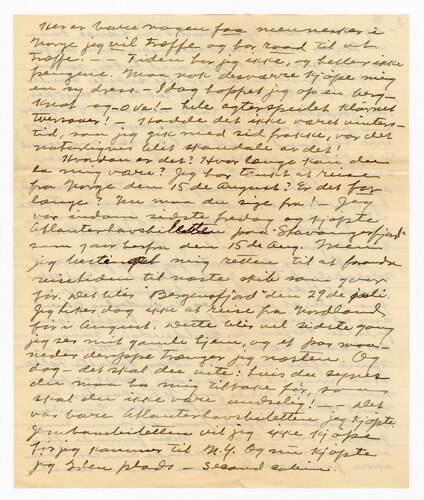 Her er bare nogen faa mennesker i
Norge jeg vil træffe og har raad til at
træffe. — — Tiden har jeg ikke, og heller ikke
pengene. Maa nok desværre kjøpe mig
en ny dress. — Idag hoppet jeg op en berg-
knat og — ove! — hele agterspeilet klarnet
tversover! — Hadde det ikke været vinters-
tid, som jeg gik med sid frakke, var det
naturligvis blit skandale av det!
Hvordan er det? Hvor længe kan du
la mig være? Jeg har tænkt at reise
fra Norge den 15de August? Er det for
længe? Nu maa du sige fra! — Jeg
var indom sidste fredag og kjøpte
Atlanterhavsbilletten paa "Stavangerfjord"
som gaar herfra den 15de Aug. Men
jeg mig retten til at forandre
reisetiden til næste skib som gaar
før. Det blir "Bergensfjord" den 29de juli.
Jeg liker dog ikke at reise fra Nordland
før i August. Dette blir vel sidste gang
jeg ser mit gamle hjem, og et par maa-
neder deroppe trænger jeg næsten. Og
dog — det skal du vite: hvis du synes
du maa ha mig tilbake før, saa
skal du ikke være undselig! — — Det
var bare Atlanterhavsbiletten jeg kjøpte,
Jernbanebiletten vil jeg ikke kjøpe
før jeg kommer til N.Y. Og nu kjøpte
jeg 2den plads — Second cabin.